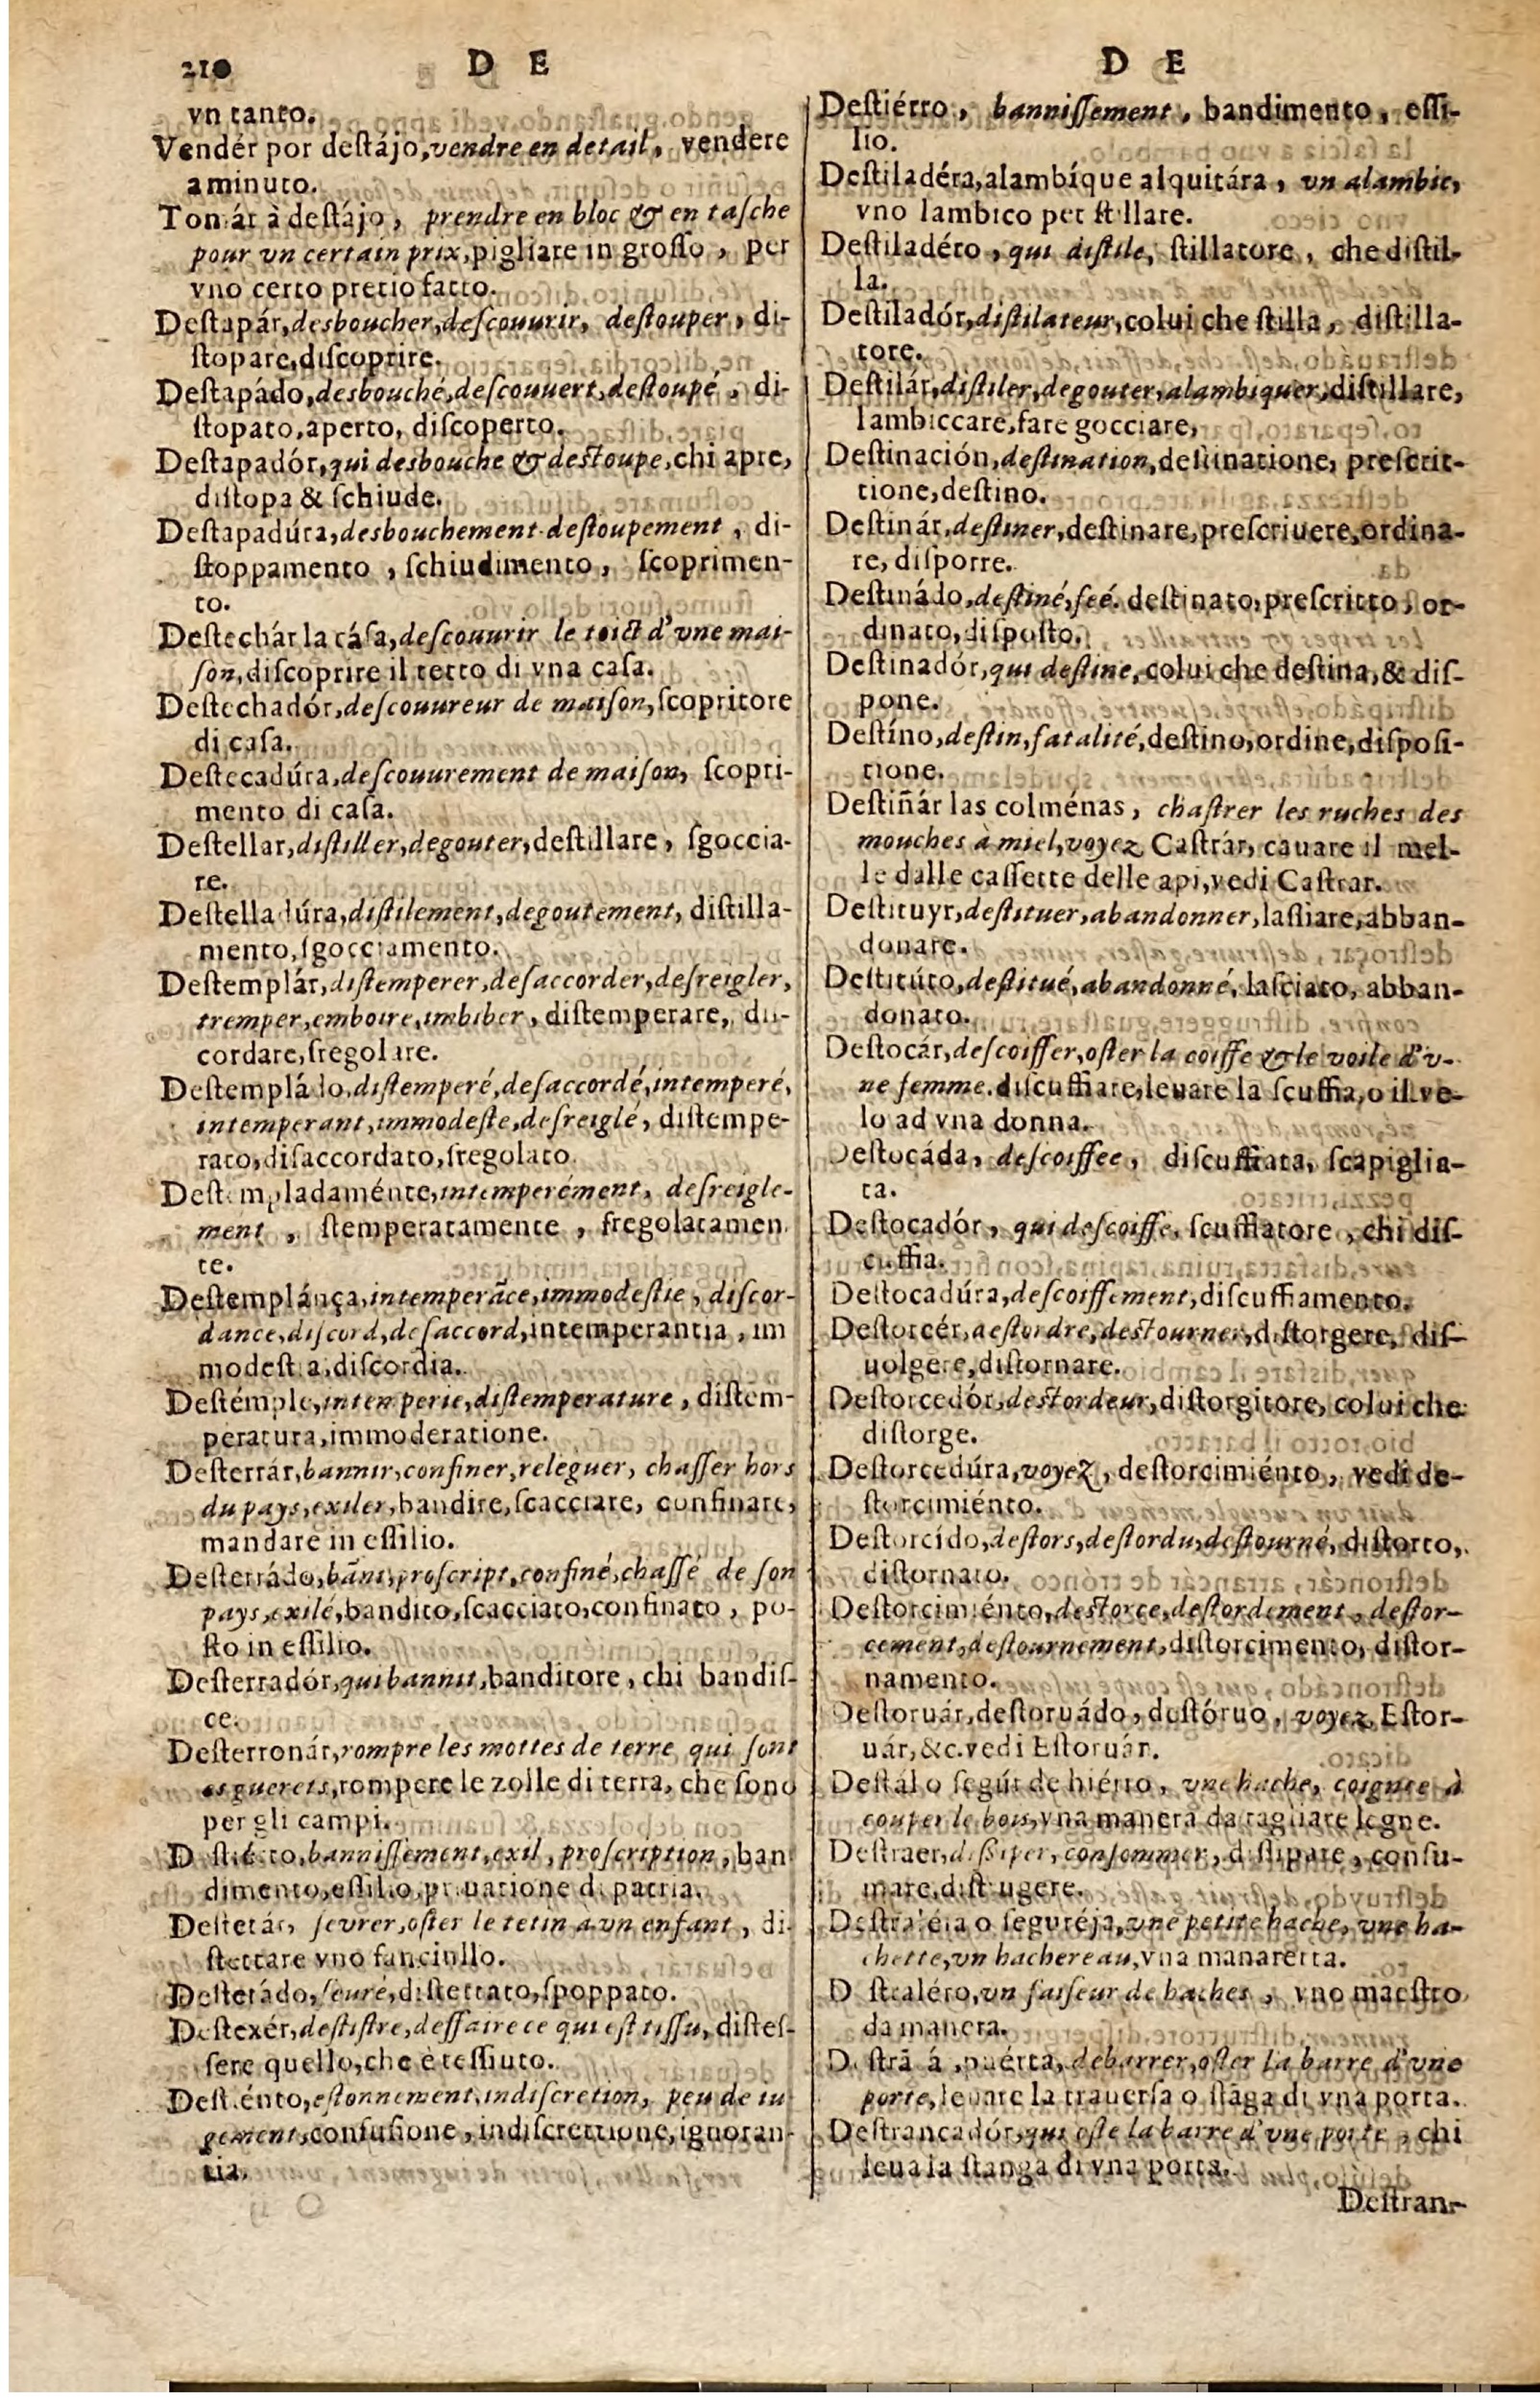 210 D E
vn tanto.
Vendér por deſtájo, vendre en detail, vendere
a minuto.
Tomár à deſtájo, prendre en bloc & en taſche
pour vn certain prix, pigliare in groſſo, per
vno certo pretio fatto.
Deſtapár, desboucher, deſcouurir, deſtouper, di-
ſtopare, diſcoprire.
Deſtapádo, desbouché, deſcouuert, deſtoupé, di-
ſtopato, aperto, diſcoperto.
Deſtapadór, qui desbouche & deſtoupe, chi apre,
diſtopa & ſchiude.
Deſtapadúra, desbouchement deſtoupement, di-
ſtoppamento, ſchiudimento, ſcoprimen-
to.
Deſtechár la cáſa, deſcouurir le toict d'vne mai-
ſon, diſcoprire il tetto di vna caſa.
Deſtechadór, deſcouureur de maiſon, ſcopritore
di caſa.
Deſtecadúra, deſcouurement de maiſon, ſcopri-
mento di caſa.
Deſtellar, diſtiller, degouter, deſtillare, ſgoccia-
re.
Deſtelladúra, diſtilement, degoutement, diſtilla-
mento, ſgocciamento.
Deſtemplár, diſtemperer, deſaccorder, deſreigler,
tremper, emboire, imbiber, diſtemperare, diſ-
cordare, ſregolare.
Deſtempládo, diſtemperé, deſaccordé, intemperé,
intemperant, immodeſte, deſreiglé, diſtempe-
rato, diſaccordato, ſregolato.
Deſtempladaménte, intemperément, deſreigle-
ment, ſtemperatamente, ſregolatamen
te.
Deſtemplánça, intemperãce, immodeſtie, diſcor-
dance, diſcord, deſaccord, intemperantia, im
modeſtia, diſcordia.
Deſtémple, intemperie, diſtemperature, diſtem-
peratura, immoderatione.
Deſterrár, bannir, confiner, releguer, chaſſer hors
du pays, exiler, bandire, ſcacciare, confinare,
mandare in eſſilio.
Deſterrádo, bãni, proſcript, confiné, chaſſé de ſon
pays, exilé, bandito, ſcacciato, confinato, po-
ſto in eſſilio.
Deſterradór, qui bannit, banditore, chi bandiſ-
ce.
Deſterronár, rompre les mottes de terre qui ſont
es guerets, rompere le zolle di terra, che ſono
per gli campi.
Deſtiérro, banniſſement, exil, proſcription, ban
dimento, eſſilio, priuatione di patria.
Deſtetár, ſevrer, oſter le tetin à vn enfant, di-
ſtettare vno fanciullo.
Deſtetádo, ſeuré, diſtettato, ſpoppato.
Deſtexér, deſtiſtre, deffaire ce qui eſt tiſſu, diſteſ-
ſere quello, che è teſſiuto.
Deſtiénto, eſtonnement, indiſcretion, peu de iu
gement, confuſione, indiſcrettione, ignoran-
tia.
D E
Deſtiérro, banniſſement, bandimento, eſſi-
lio.
Deſtiladéra, alambíque alquitára, vn alambic,
vno lambico per ſtillare.
Deſtiladéro, qui diſtile, ſtillatore, che diſtil-
la.
Deſtiladór, diſtilateur, colui che ſtilla, diſtilla-
tore.
Deſtilár, diſtiler, degouter, alambiquer, diſtillare,
lambiccare, fare gocciare,
Deſtinación, deſtination, deſtinatione, preſcrit-
tione, deſtino.
Deſtinár, deſtiner, deſtinare, preſcriuere, ordina-
re, diſporre.
Deſtinádo, deſtiné, feé. deſtinato, preſcritto, or-
dinato, diſpoſto.
Deſtinadór, qui deſtine, colui che deſtina, & diſ-
pone.
Deſtíno, deſtin, fatalité, deſtino, ordine, diſpoſi-
tione.
Deſtiñár las colménas, chaſtrer les ruches des
mouches à miel, voyez Caſtrár, cauare il mel-
le dalle caſſette delle api, vedi Caſtrar.
Deſtituyr, deſtituer, abandonner, laſſiare, abban-
donare.
Deſtitúto, deſtitué, abandonné, laſciato, abban-
donato.
Deſtocár, deſcoiffer, oſter la coiffe & le voile d'v-
ne femme. diſcuffiare, leuare la ſcuffia, o il ve-
lo ad vna donna.
Deſtocáda, deſcoiffee, diſcuffiata, ſcapiglia-
ta.
Deſtocadór, qui deſcoiffe, ſcuffiatore, chi diſ-
cuffia.
Deſtocadúra, deſcoiffement, diſcuffiamento.
Deſtorcér, deſtordre, deſtourner, diſtorgere, diſ-
uolgere, diſtornare.
Deſtorcedór, deſtordeur, diſtorgitore, colui che
diſtorge.
Deſtorcedúra, voyez, deſtorcimiénto, vedi de-
ſtorcimiénto.
Deſtorcído, deſtors, deſtordu, deſtourné, diſtorto,
diſtornato.
Deſtorcimiénto, deſtorce, deſtordement, deſtor-
cement, deſtournement, diſtorcimento, diſtor-
namento.
Deſtoruár, deſtoruádo, deſtóruo, voyez Eſtor-
uár, &c. vedi Eſtoruár.
Deſtál o ſegúr de hiérro, vne hache, coignee à
couper le bois, vna manera da tagliare legne.
Deſtraer, diſſiper, conſommer, diſſipare, conſu-
mare, diſtrugere.
Deſtraléja o ſeguréja, vne petite hache, vne ha-
chette, vn hachereau, vna manaretta.
Deſtraléro, vn faiſeur de haches, vno maeſtro
da manera.
puérta, debarrer, oſter la barre d'vne
porte, leuare la trauerſa o ſtãga di vna porta.
Deſtrancadór, qui oſte la barre d'vne porte, chi
leua la ſtanga di vna porta.
Deſtran-